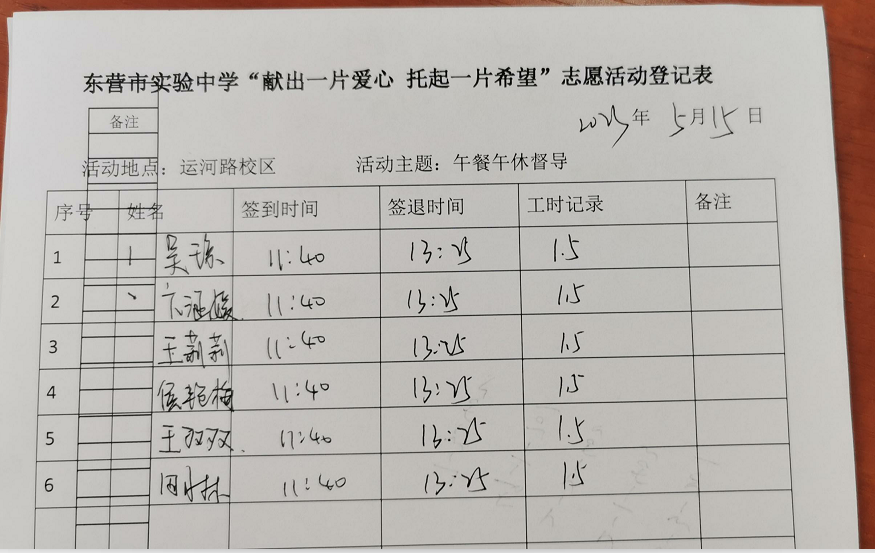 东营市实验中学“献出一片爱心 托起一片希望”志愿活动登记表
备注
2023年 5月15日
活动地点：运河路校区 活动主题：午餐午休督导
序号 姓名 签到时间 签退时间 工时记录 备注
1 吴 11:40 13:25 1.5
2 11:40 13:25 1.5
3 王莉莉 11:40 13:25 1.5
4 侯艳梅 11:40 13:25 1.5
5 王双双 11:40 13:25 1.5
6 田 11:40 13:25 1.5